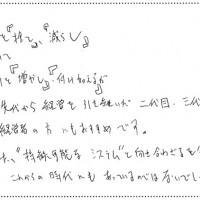 を『捨て』、『減らし』
て
を『増かし』、付け加えるか』
先代から経営を引き継いだ二代目、三代
経営者の方にもおすすめです。
、"持続可能なシステム"と向き合わせる
これからの時代にも あっているのではないでし